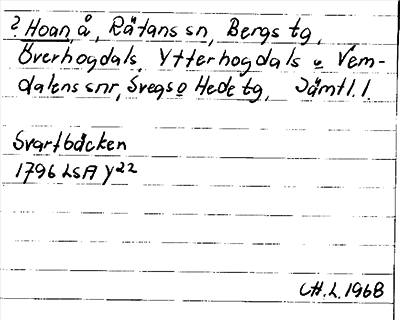 ? Hoan, å, Rätans sn, Bergs tg,
Överhogdals, Ytterhogdals o Vem-
dalens snr, Svegs o Hede tg, Jämtl. l
Svartbäcken
1796 LSA Y22
CH. L. 1968